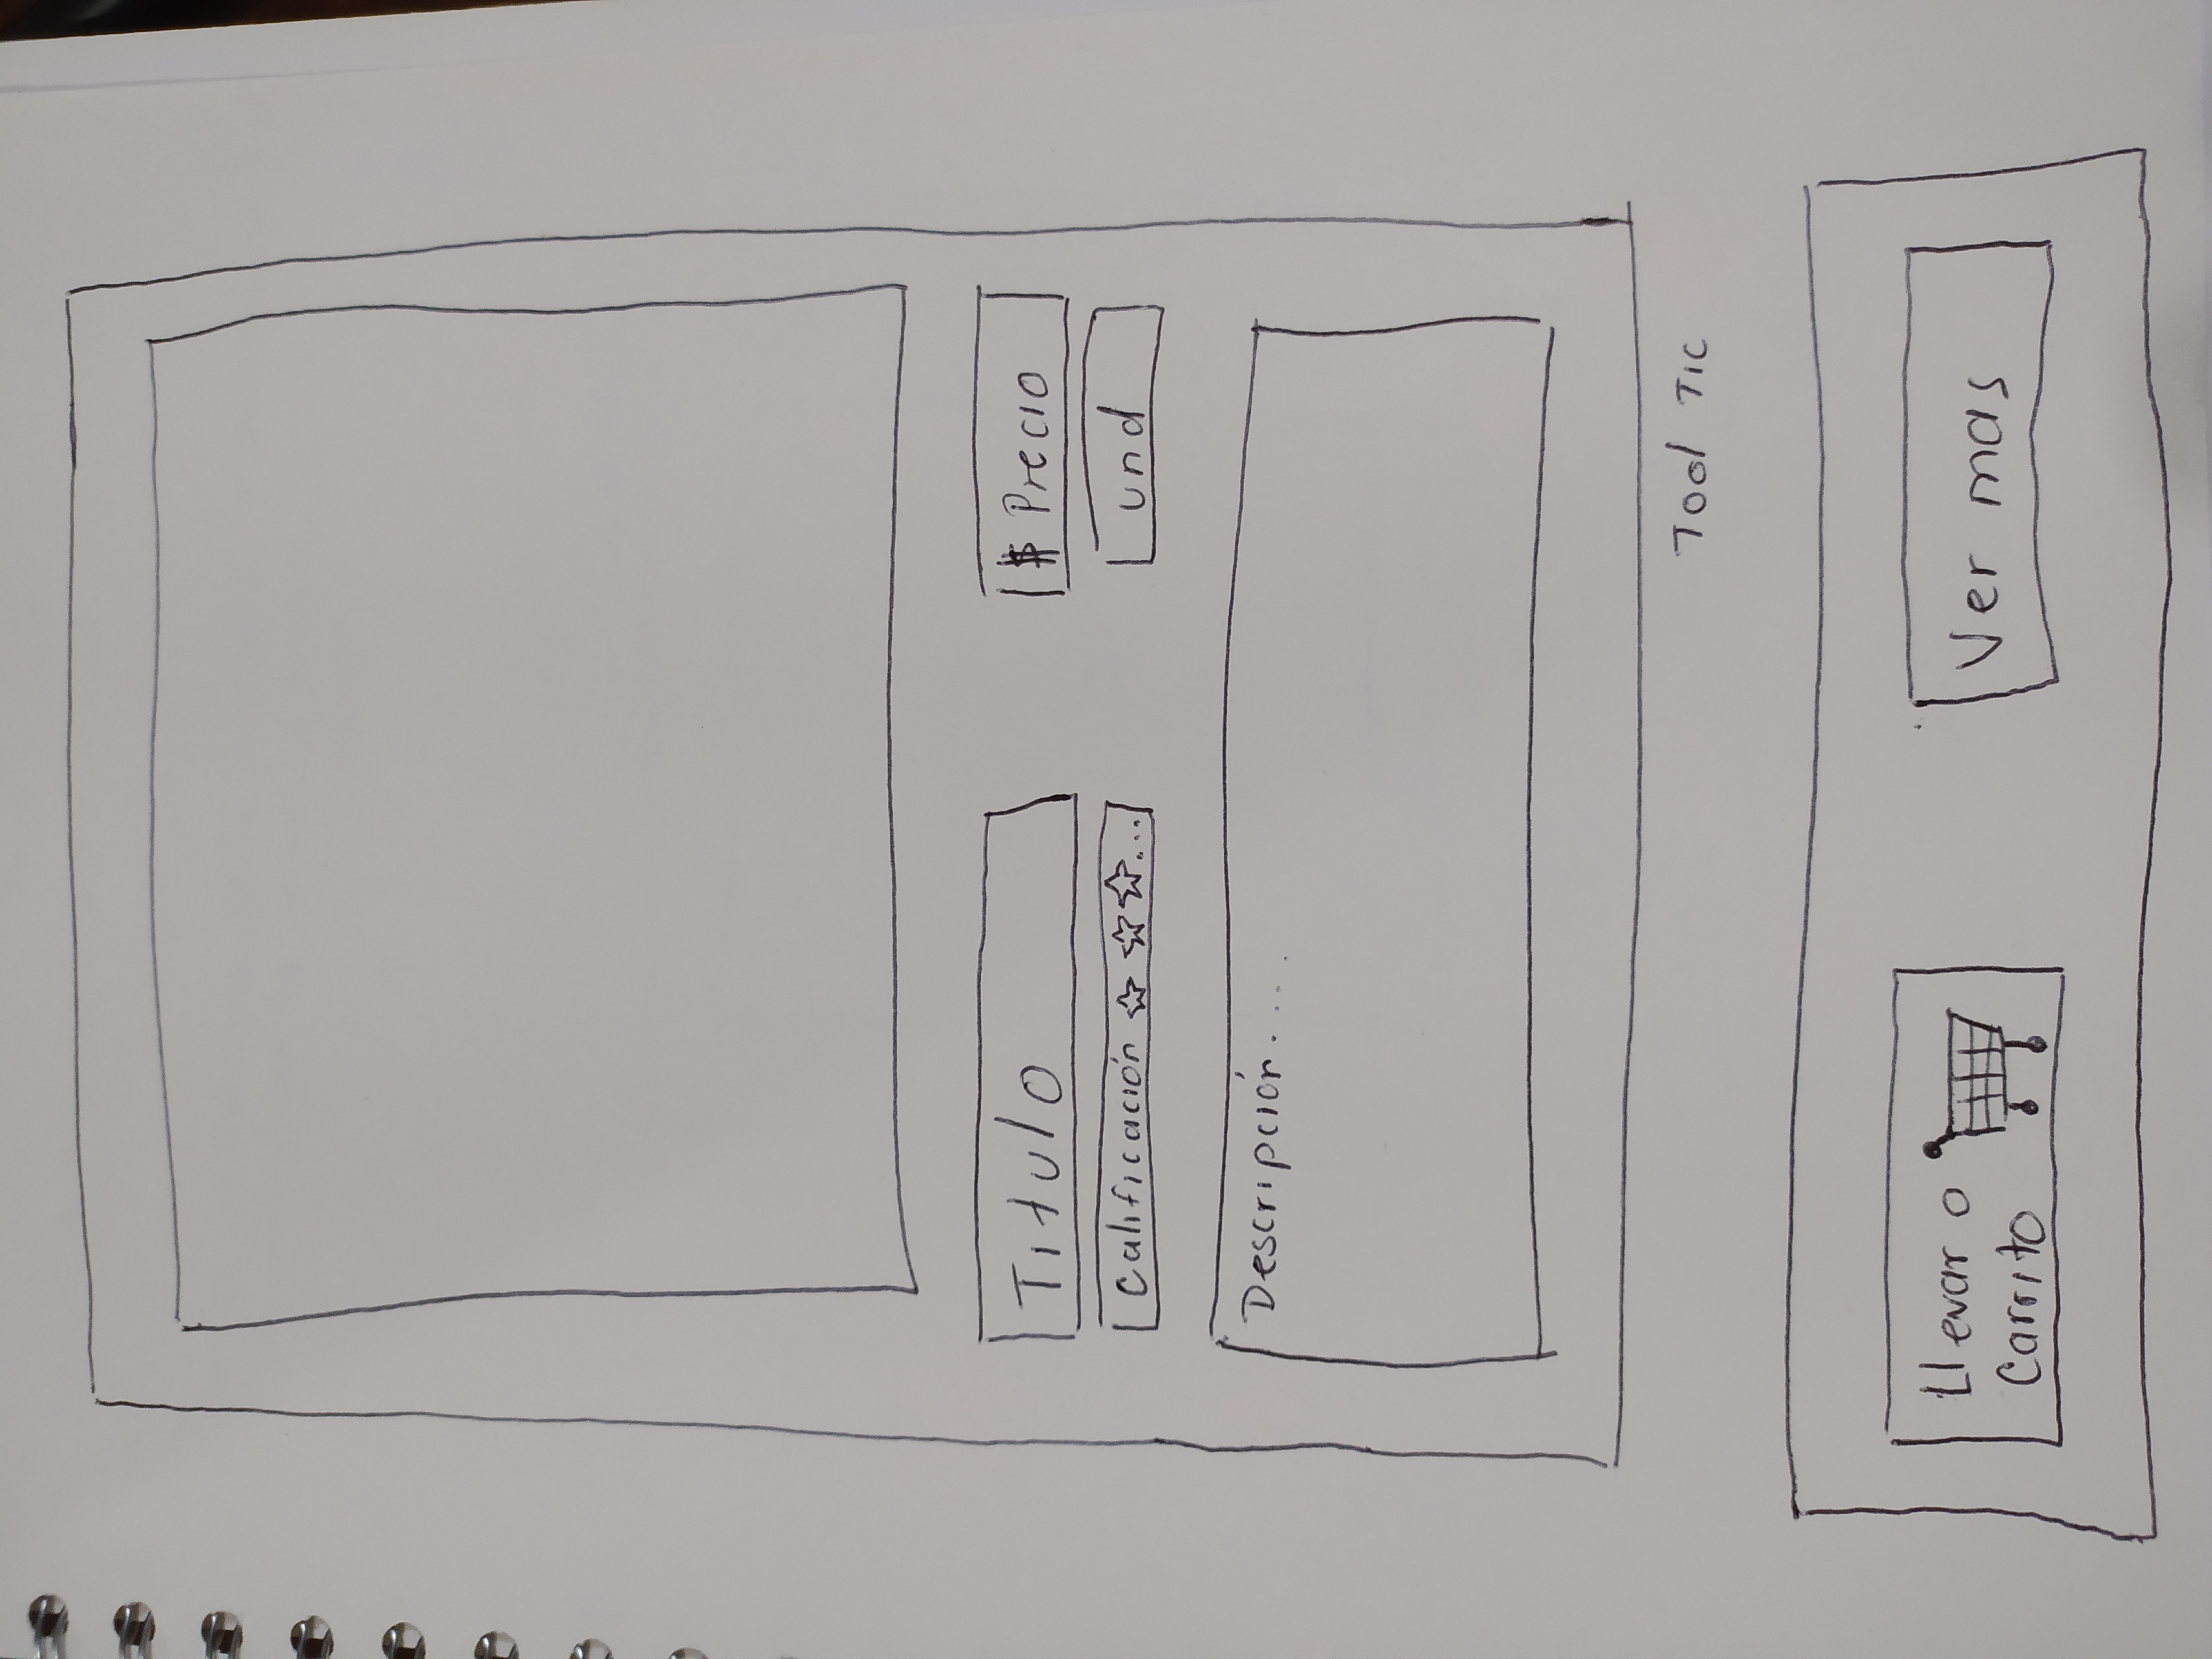 Titulo
$ Precio
Calificación ☆ ☆ ☆...
und
Descripción.....
Tool Tic
Llevar o
Carrito
Ver mas